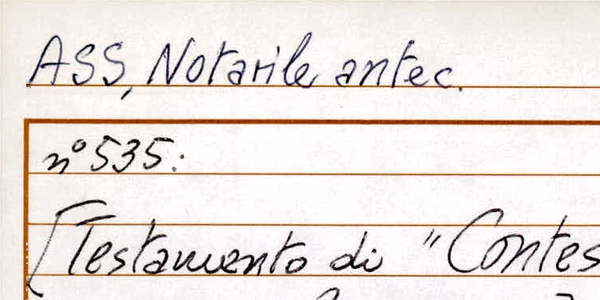 ASS, Notarile antec.
n° 535:
[Testamento di "Contes